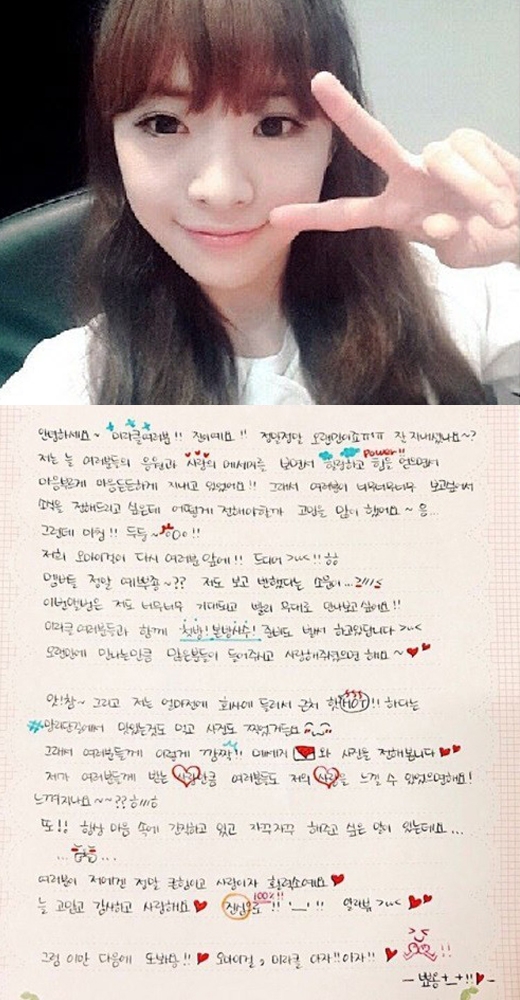 안녕하세요~ 미라클여러분!! 진이예요!! 정말정말 오랜만이죠ㅠㅠ 잘 지내셨나요~?
저는 늘 여러분들의 응원과 사랑의 메세지를 보면서 힘내고 힘을 얻으면서 power!!
마음부르게 마음든든하게 지내고 있었어요!! 그래서 여러분이 너무너무너무 보고싶어서
소식을 전해드리고 싶은데 어떻게 전해야할까 고민을 많이 했어요~ 음...
그런데 마침!! 두둥~ !!
저희 오마이걸이 다시 여러분 앞에!! 드디어 >ㅡ<!! ㅎㅎ
멤버들 정말 예쁘죵~?? 저도 보고 반했다는 소문이...
이번앨범은 저도 너무너무 기대되고 빨리 무대로 만나보고싶어요!!
미라클 여러분들과 함께 첫방! 본방사수! 준비도 벌써 하고있답니다 >ㅡ<
오랜만에 만나는만큼 많은분들이 들어주시고 사랑해주셨으면 해요~
앗!참~ 그리고 저는 얼마전에 회사에 들러서 근처 핫(HOT)!! 하다는
맛있는것도 먹고 사진도 찍었거든요
그래서 여러분들께 이렇게 깜짝!! 메세지 와 사진을 전해봅니다
제가 여러분들께 받는 사랑만큼 여러분들도 저의 사랑을 느낄 수 있었으면해요!
느껴지나요~~??
또!! 항상 마음 속에 간직하고 있고 자꾸자꾸 해주고 싶은 말이 있는데요...
여러분이 저에겐 정말 큰힘이고 사랑이자 활력소예요
늘 고맙고 감사하고 사랑해요 진심 100% !! '__' !! 알라뷰 >ㅡ<
그럼 이만 다음에 또봐용!! 오마이걸, 미라클 아자!! 아자!!
- 뿅용 +_+!! -